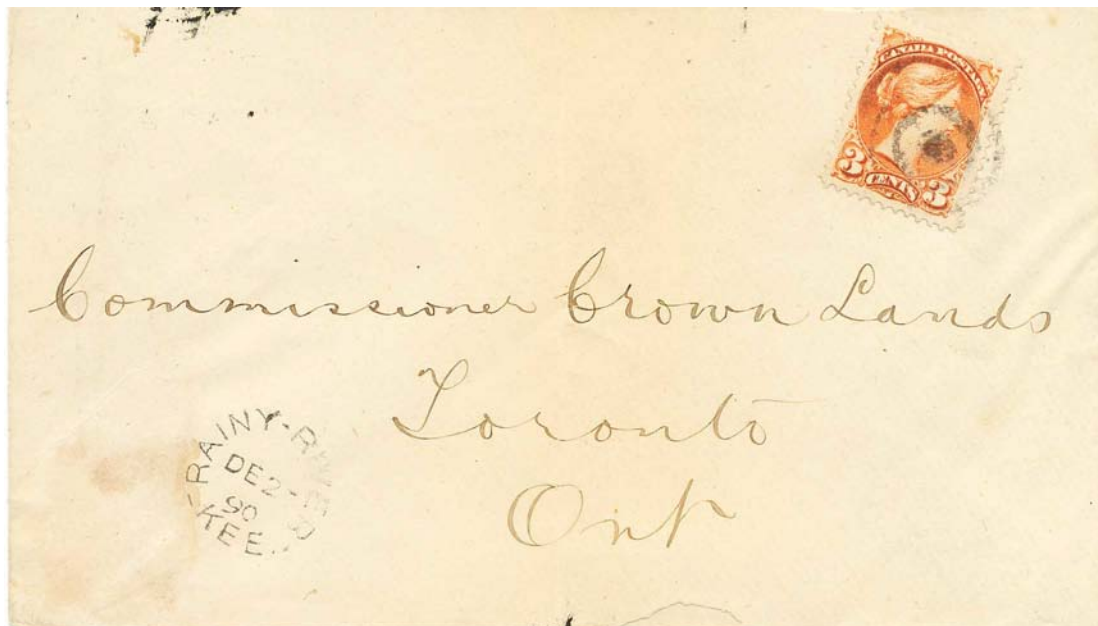 CANADA POSTAGE
3 CENTS 3
Commissioner Crown Lands
Toronto
Ont
RAINY-RIVER
DE 2
90
KEE..